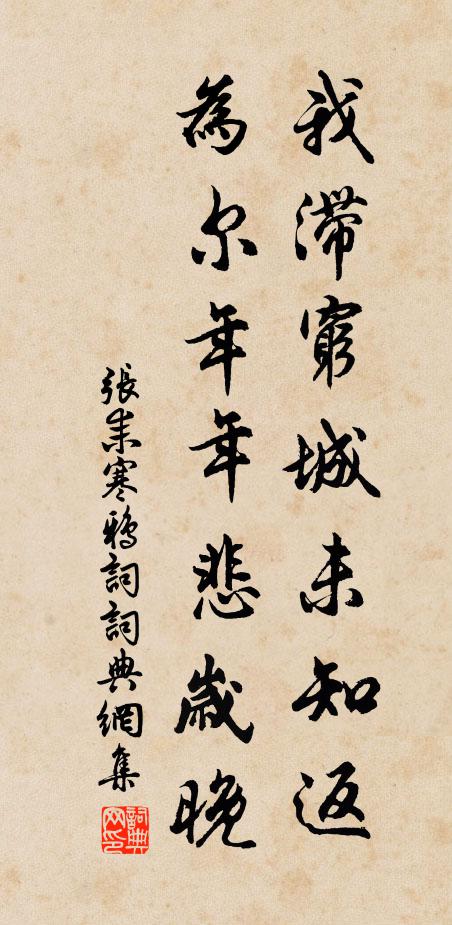 我滞窮城未知返
為尔年年悲歲晚
張耒寒鴉詞詞典網集
詞典網印